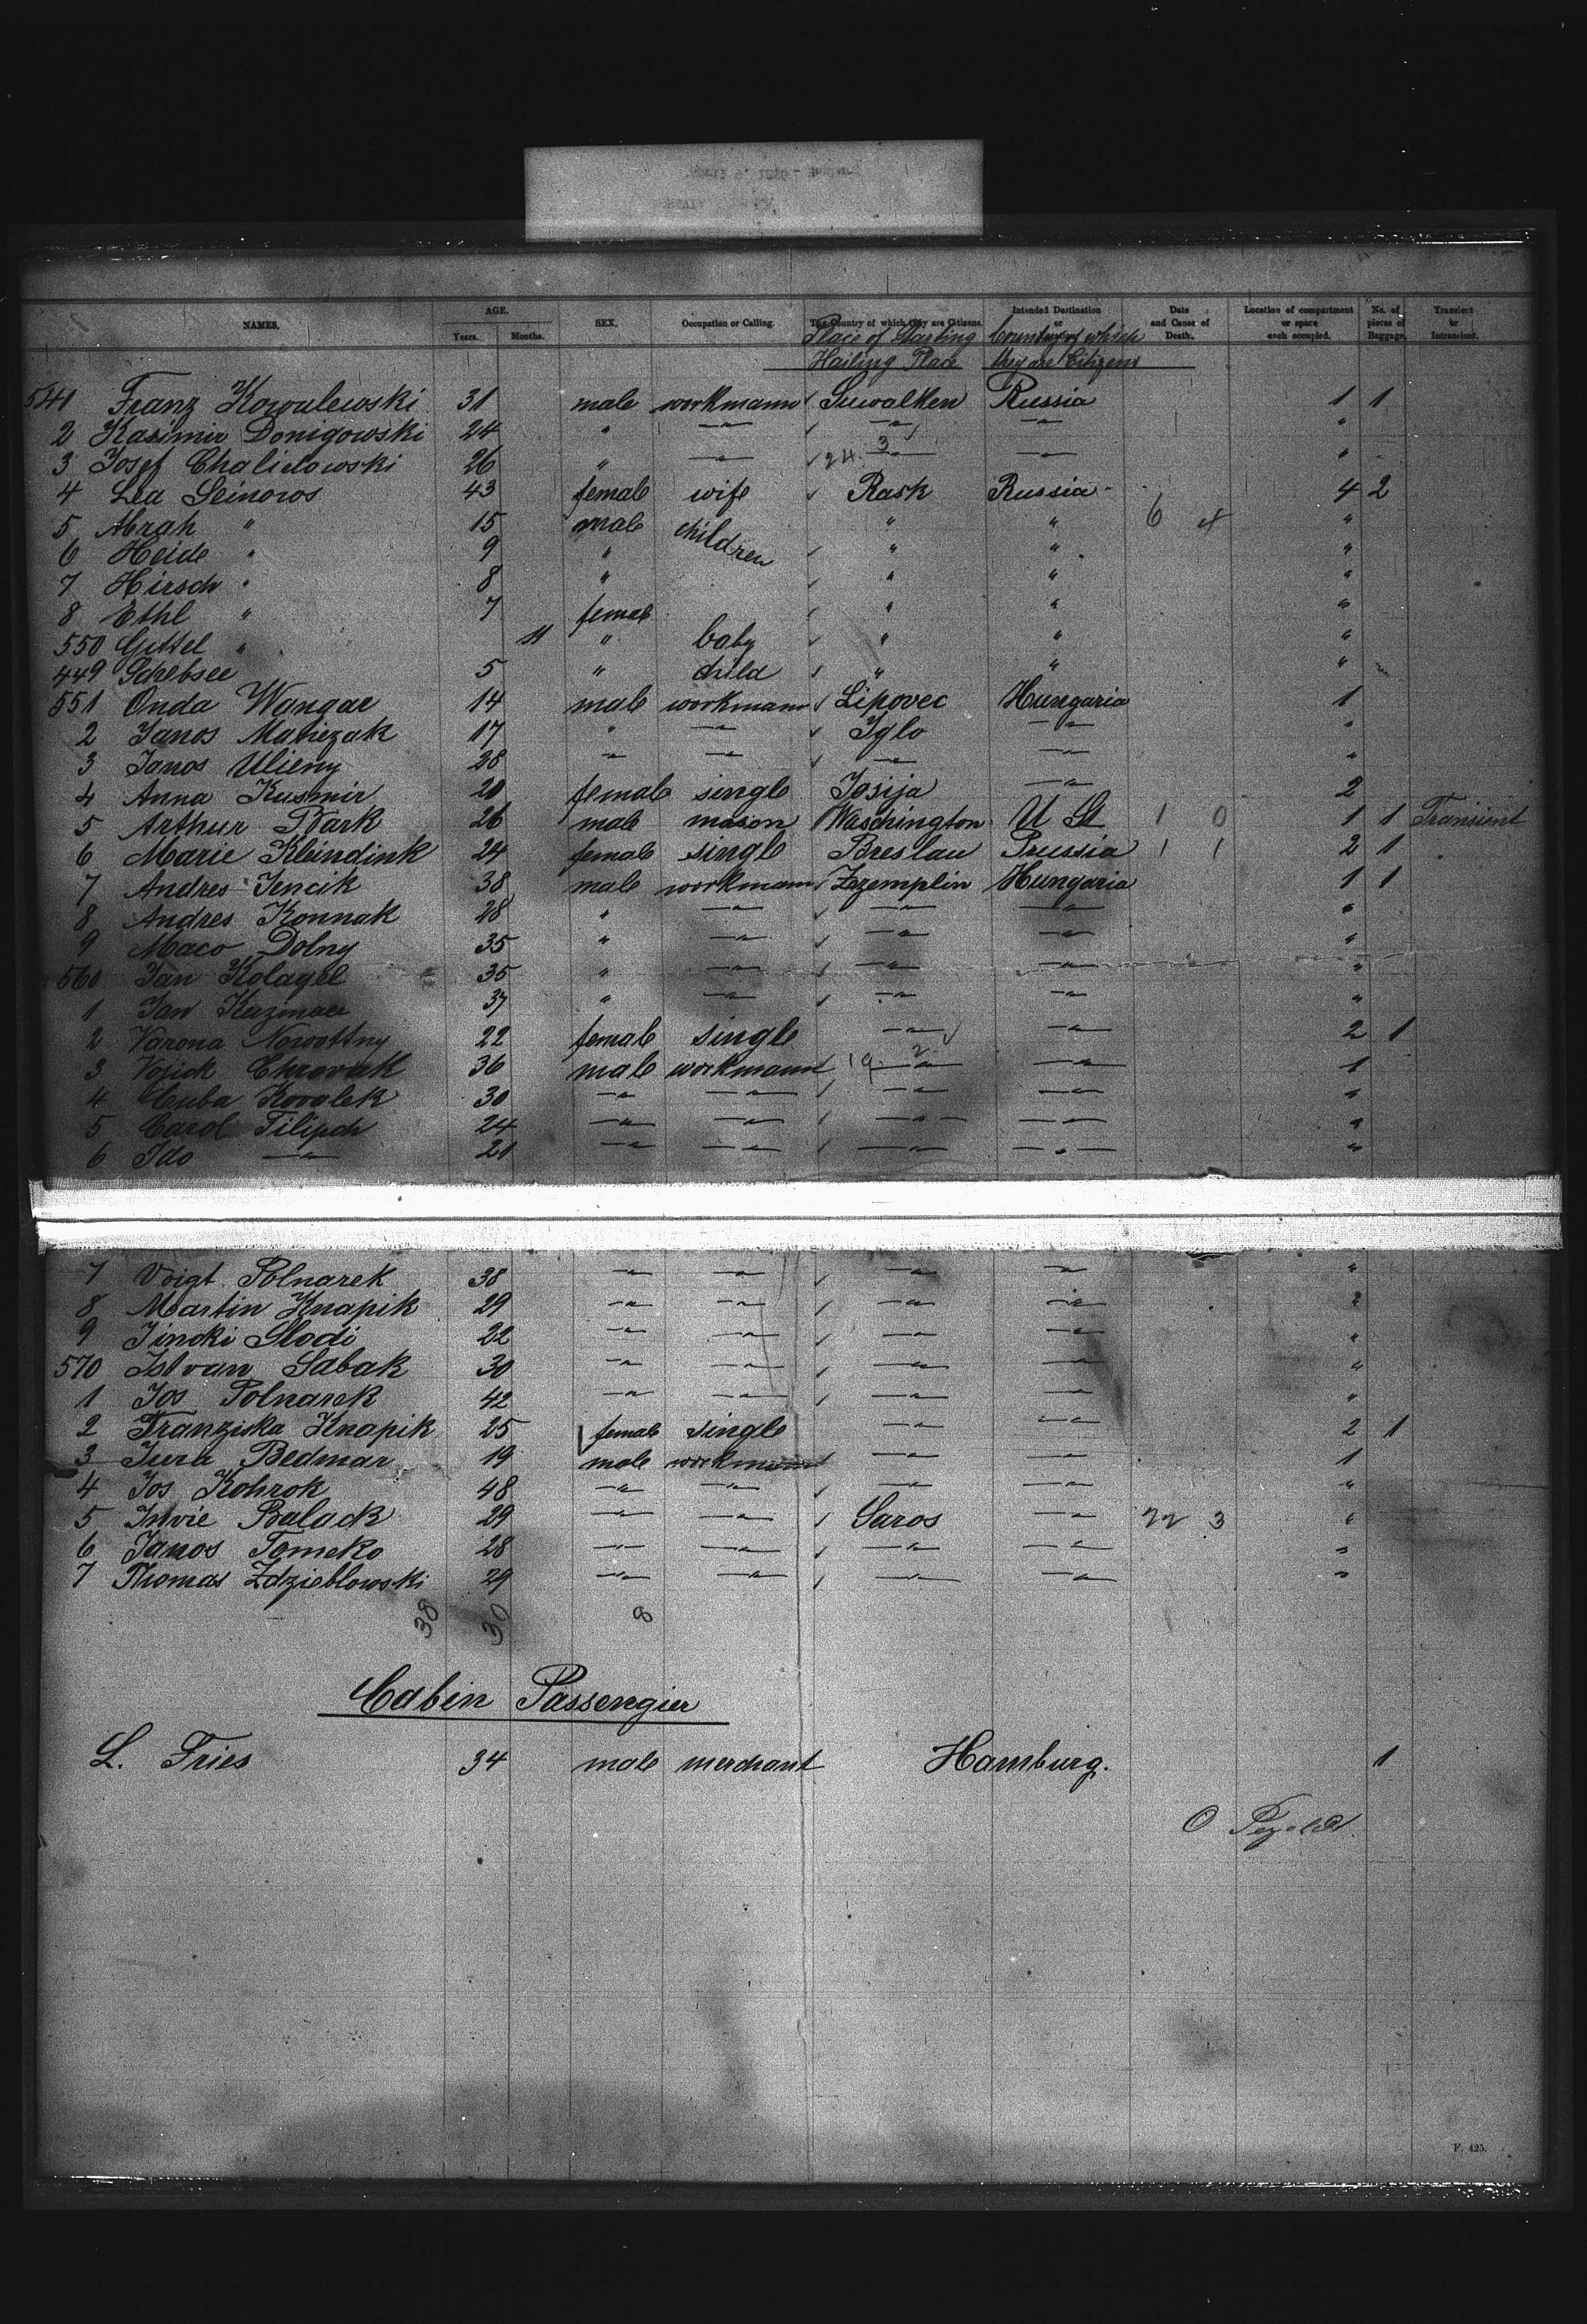 NAMES. AGE. SEX. Occupation or Calling. The Country of which they are Citizens. Intended Destination or Date and Cause of Death. Location of compartment or space each occupied. No. of pieces of Baggage. Transient or Intransient.
Years. Months. Place of Starting Country of which
Hailing Place they are Citizens
541 Franz Kowalewski 31 male workmann Suwalken Russia 1 1
2 Kasimir Donigowski 24 " —"— —"— —"— "
3 Josef Chalidowski 26 " —"— 24 3 —"— —"— "
4 Lea Seinoros 43 female wife Rask Russia 4 2
5 Abrah " 15 male children " " 6 4 "
6 Heide " 9 " " " "
7 Hirsch " 8 " " " "
8 Ethl " 7 female " " "
550 Gittel " 11 " baby " " "
449 Schebsee 5 " child " " "
551 Onda Wangar 14 male workmann Lipovec Hungaria 1
2 Janos Matiezak 17 " —"— Iglo —"— "
3 Janos Ulieny 28 —"— —"— —"— —"— "
4 Anna Kusmir 20 female single Josija —"— 2
5 Arthur Bark 26 male mason Waschington U St 1 0 1 1 Transient
6 Marie Kleindink 24 female single Breslau Prussia 1 1 2 1
7 Andres Jencik 38 male workmann Zezemplin Hungaria 1 1
8 Andres Konnak 28 " —"— —"— —"— "
9 Maco Dolny 35 " —"— —"— —"— "
560 Jan Kolagel 35 " —"— —"— —"— "
1 Jan 37 " —"— —"— —"— "
2 Varona Nowottny 22 female single —"— —"— 2 1
3 Vojick Chrovak 36 male workmann 19 2 —"— —"— 1
4 Cuba Kovalek 30 —"— —"— —"— —"— "
5 Carol Filipch 24 —"— —"— —"— —"— "
6 Ido —"— 21 —"— —"— —"— —"— "
7 Voigt Polnarek 38 —"— —"— —"— —"— "
8 Martin Knapik 29 —"— —"— —"— —"— "
9 Jinoki Slodi 22 —"— —"— —"— —"— "
570 Istvan Sabak 30 —"— —"— —"— —"— "
1 Jos Polnarek 42 —"— —"— —"— —"— "
2 Franziska Knapik 25 female single —"— —"— 2 1
3 Jura Bedmar 19 male workmann —"— —"— 1
4 Jos Kohrok 48 —"— —"— —"— —"— "
5 Istvie Balack 29 —"— —"— Saros —"— 22 3 "
6 Janos Tomcko 28 —"— —"— —"— —"— "
7 Thomas Zdzieblowski 29 —"— —"— —"— —"— "
38 30 8
Cabin Passengier
L. Fries 34 male merchant Hamburg. 1
O Pezoldt
F. 425.